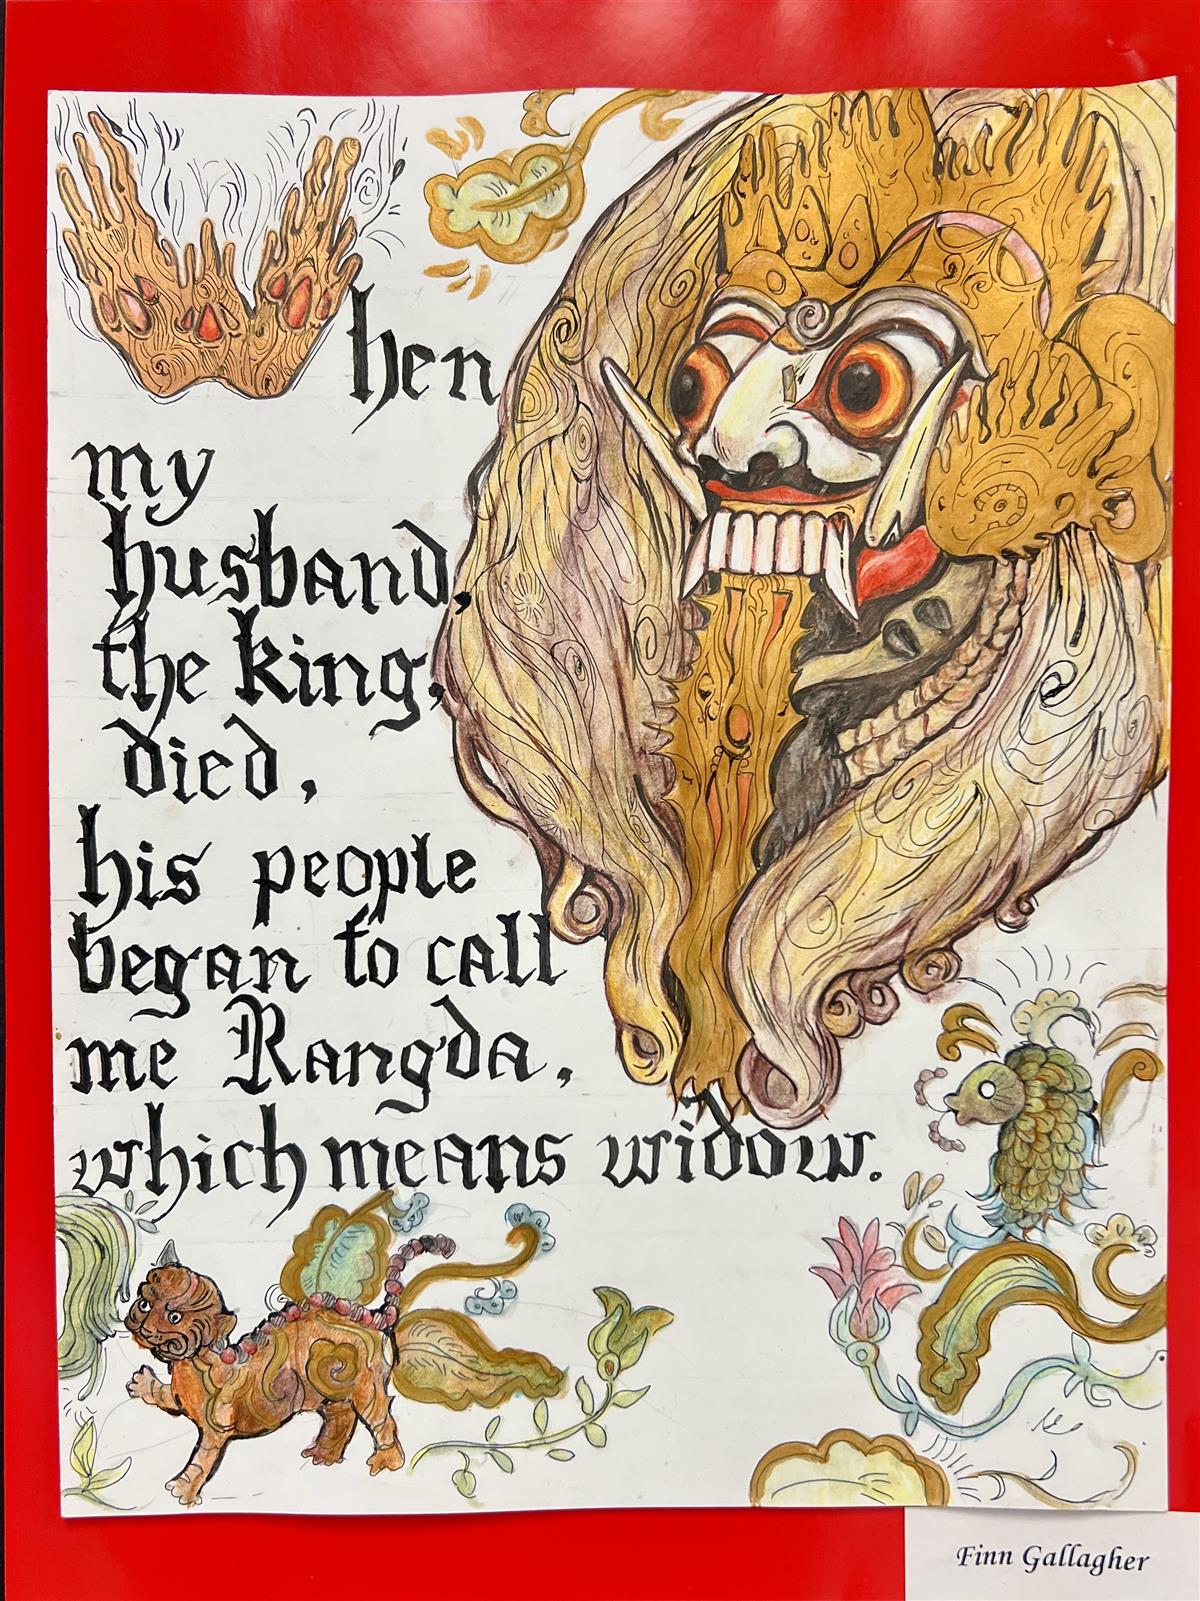 When
my
husband,
the king,
died,
his people
began to call
me Rangda,
which means widow.
Finn Gallagher